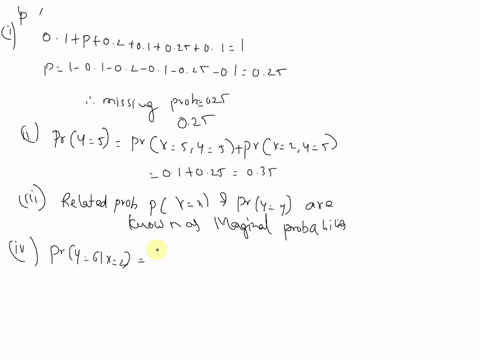 p '
(i)
0.1+p+0.2+0.1+0.25+0.1=1
p=1-0.1-0.2-0.1-0.25-0.1=0.25
∴ missing prob=025
0.25
(ii) Pr(Y=5)= Pr(x=5,y=5)+pr(x=2,y=5)
=0.1+0.25=0.35
(iii) Related prob p(x=x) & pr(y=y) are
known as Marginal probabilities
(iv) Pr(y=6|x=2)=